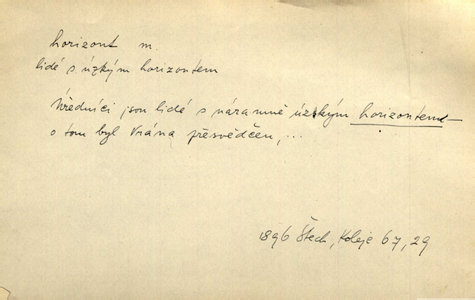 horizont m.
lidé s úzkým horizontem
Úředníci jsou lidé s náramně úzkým horizontem –
o tom byl Vrána přesvědčen, ...
1896 Štech, Koleje 67, 29